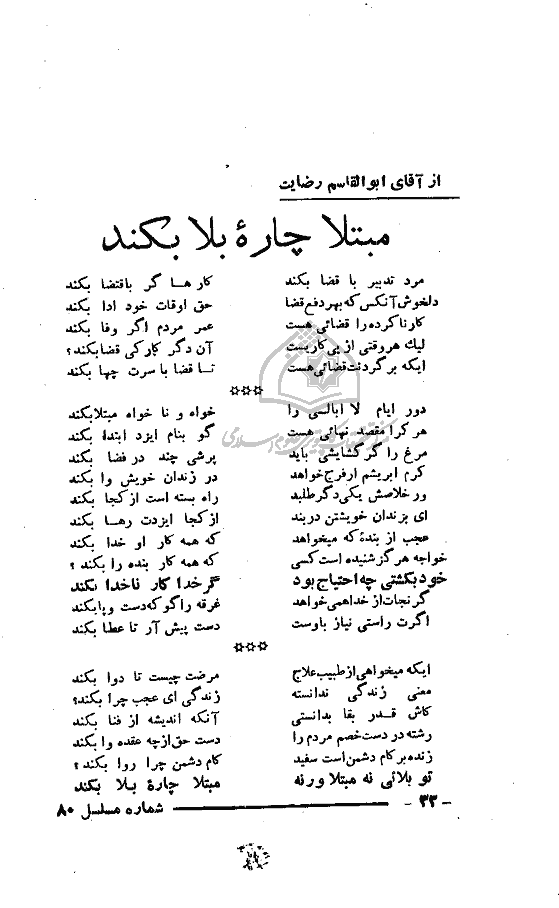 از آقای ابوالقاسم رضایت
مبتلا چارهٔ بلا بکند
مرد تدبیر با قضا بکند کارها گر باقتضا بکند
دلخوش آنکس که بهر دفع قضا حق اوقات خود ادا بکند
کار ناکرده را قضائی هست عمر مردم اگر وفا بکند
لیك هر وقتی از پی کاریست آن دگر کار کی قضا بکند؟
ایکه بر گردنت قضائی هست تا قضا با سرت چها بکند
***
دور ایام لا ابالی را خواه و نا خواه مبتلا بکند
هر کرا مقصد نهائی هست گو بنام ایزد ابتدا بکند
مرغ را گر گشایشی باید پرشی چند در فضا بکند
کرم ابریشم ار فرج خواهد در زندان خویش وا بکند
ور خلاصش یکی دگر طلبد راه بسته است از کجا بکند
ای بزندان خویشتن دربند از کجا ایزدت رها بکند
عجب از بندهٔ که میخواهد که همه کار او خدا بکند
خواجه هرگز شنیده است کسی که همه کار بنده را بکند؟
خود بکشتی چه احتیاج بود گر خدا کار ناخدا بکند
گر نجات از خدا همی خواهد غرقه را گو که دست و پا بکند
اگرت راستی نیاز باوست دست پیش آر تا عطا بکند
***
ایکه میخواهی از طبیب علاج مرضت چیست تا دوا بکند
معنی زندگی ندانسته زندگی ای عجب چرا بکند؟
کاش قدر بقا بدانستی آنکه اندیشه از فنا بکند
رشته در دست خصم مردم را دست حق از چه عقده وا بکند
زنده بر کام دشمن است سفید کام دشمن چرا روا بکند؟
تو بلائی نه مبتلا ورنه مبتلا چارهٔ بلا بکند
- ۳۳ - شماره مسلسل ۸۰